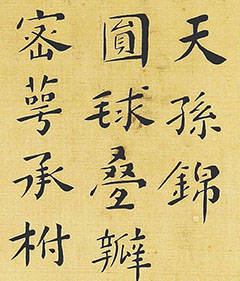 天孫錦
圓球疊瓣
密萼承柎